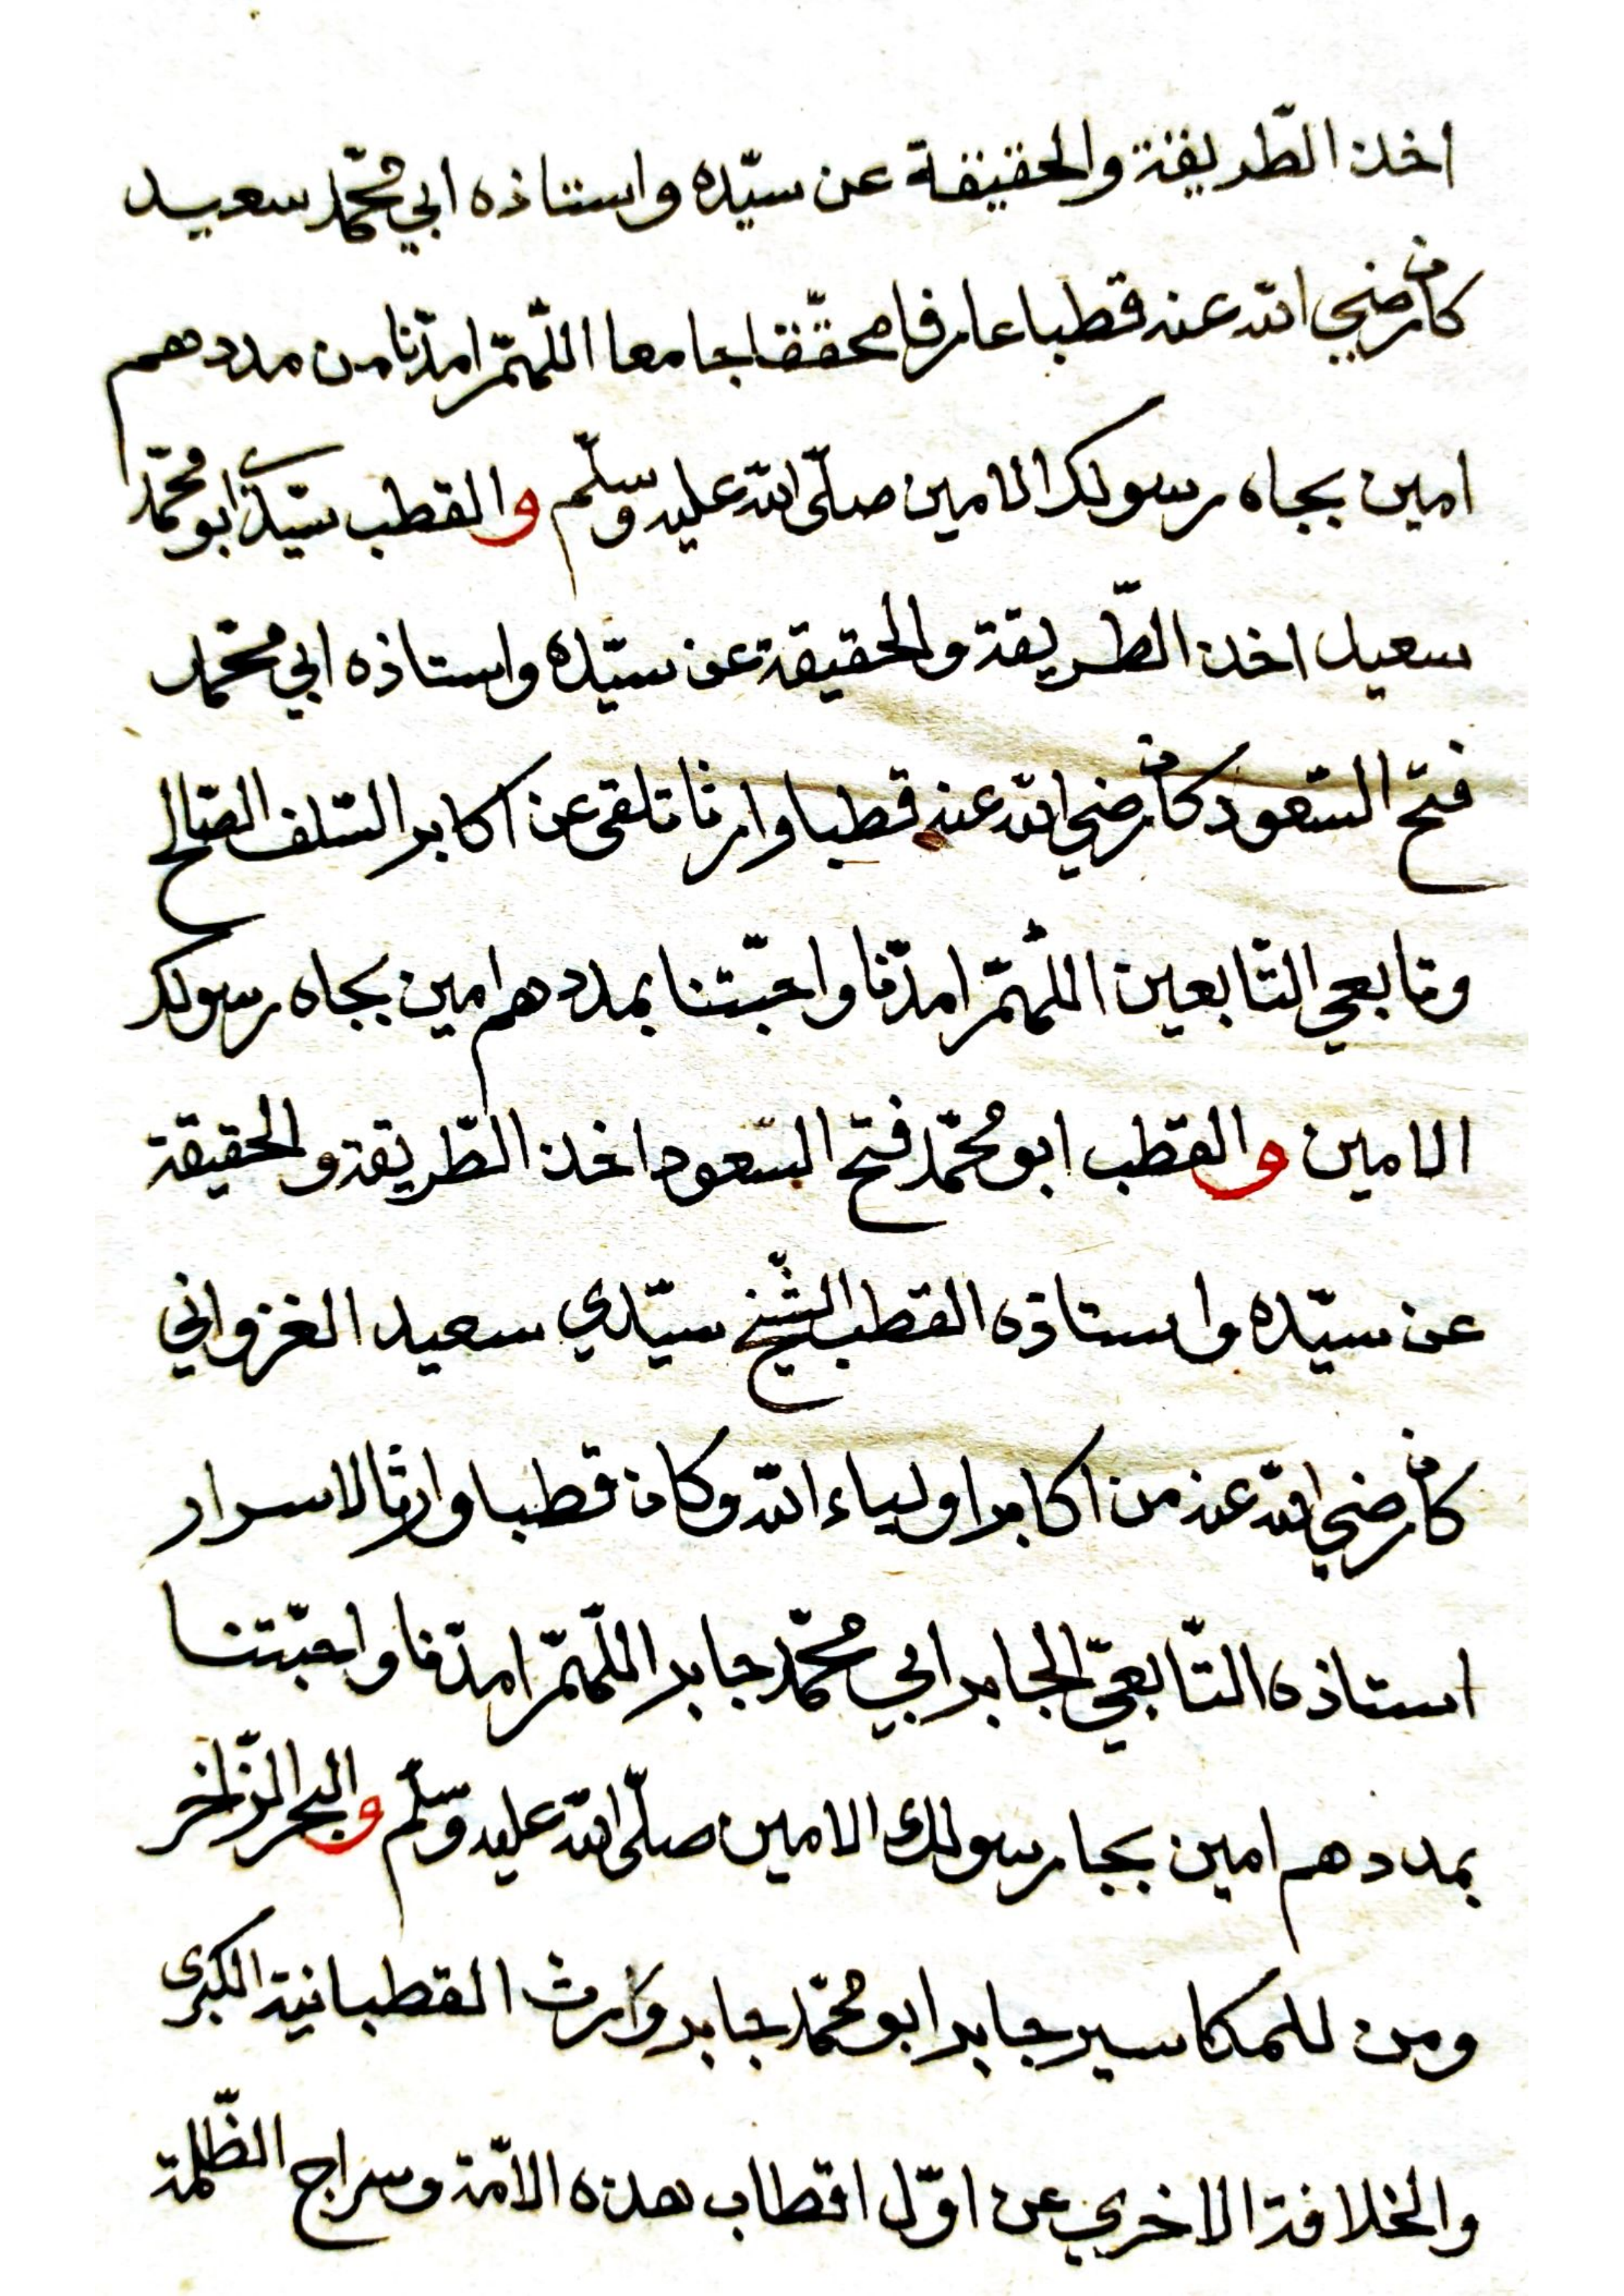 اخذ الطّريقة والحقيقة عن سيّده واستاذه ابي محمّد سعيد
كان رضي الله عنه قطبا عارفا محقّقا جامعا اللّهمّ امدّنا من مددهم
امين بجاه رسولك الامين صلّى الله عليه وسلّم والقطب سيّدي ابو محمّد
سعيد اخذ الطّريقة والحقيقة عن سيّده واستاذه ابي محمّد
فتح السّعود كان رضي الله عنه قطبا وارثا تلقى عن اكابر السّلف الصّالح
وتابعي التّابعين اللّهمّ امدّنا واحبّتنا بمددهم امين بجاه رسولك
الامين والقطب ابو محمّد فتح السّعود اخذ الطّريقة والحقيقة
عن سيّده واستاذه القطب الشّيخ سيّدي سعيد الغزواني
كان رضي الله عنه من اكابر اولياء الله وكان قطبا وارثا لاسرار
استاذه التّابعيّ الجابر ابي محمّد جابر اللّهمّ امدّنا واحبّتنا
بمددهم امين بجا رسولك الامين صلّى الله عليه وسلّم والبحر الزّاخر
ومن للمكاسير جابر ابو محمّد جابر وارث القطبانية الكبرى
والخلافة الاخرى عن اوّل اقطاب هذه الامّة وسراج الظّلمة